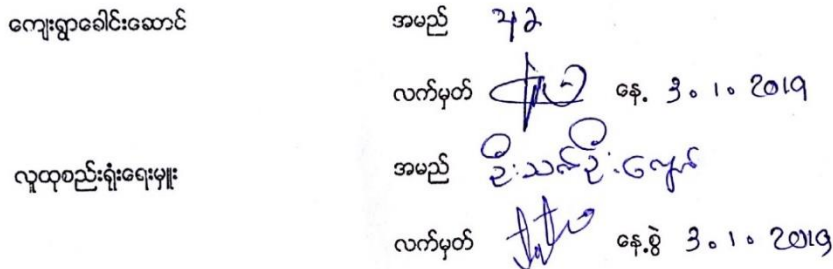 ကျေးရွာခေါင်းဆောင် အမည်
လက်မှတ် နေ့ 3.1.2019
လူထုစည်းရုံးရေးမှူး အမည် ဦးသက်ဦးကျော်
လက်မှတ် နေ့စွဲ 3.1.2019